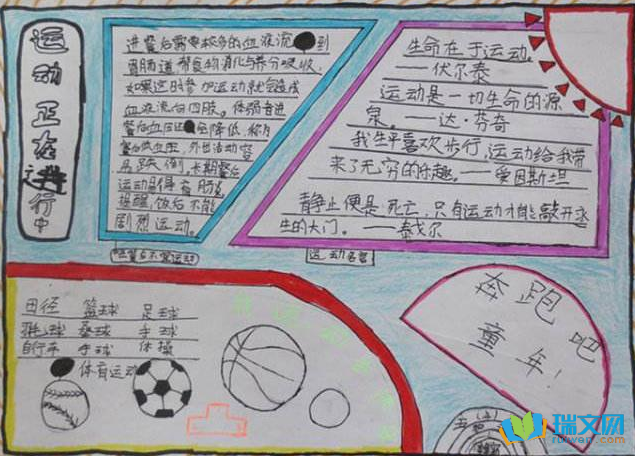 运动正在进行中
进餐后需要较多的血液流到
胃肠道帮食物消化与养分吸收.
如果这时参加运动就会造成
血液流向四肢。体弱者进
餐后血压还会降低,称为
餐后低血压,外出活动容
易跌倒,
运动
提醒,饭后不能
剧烈运动。
生命在于运动.
——伏尔泰
运动是一切生命的源
泉。——达·芬奇
我生平喜欢步行,运动给我带
来了无穷的乐趣。——爱因斯坦
静止便是死亡,只有运动才能敲开永
生的大门。——泰戈尔
运动名言
田径 篮球 足球
羽毛球 垒球 手球
自行车 手球 体操
体育运动
奔跑吧
童年!
瑞文网
ruiwen.com